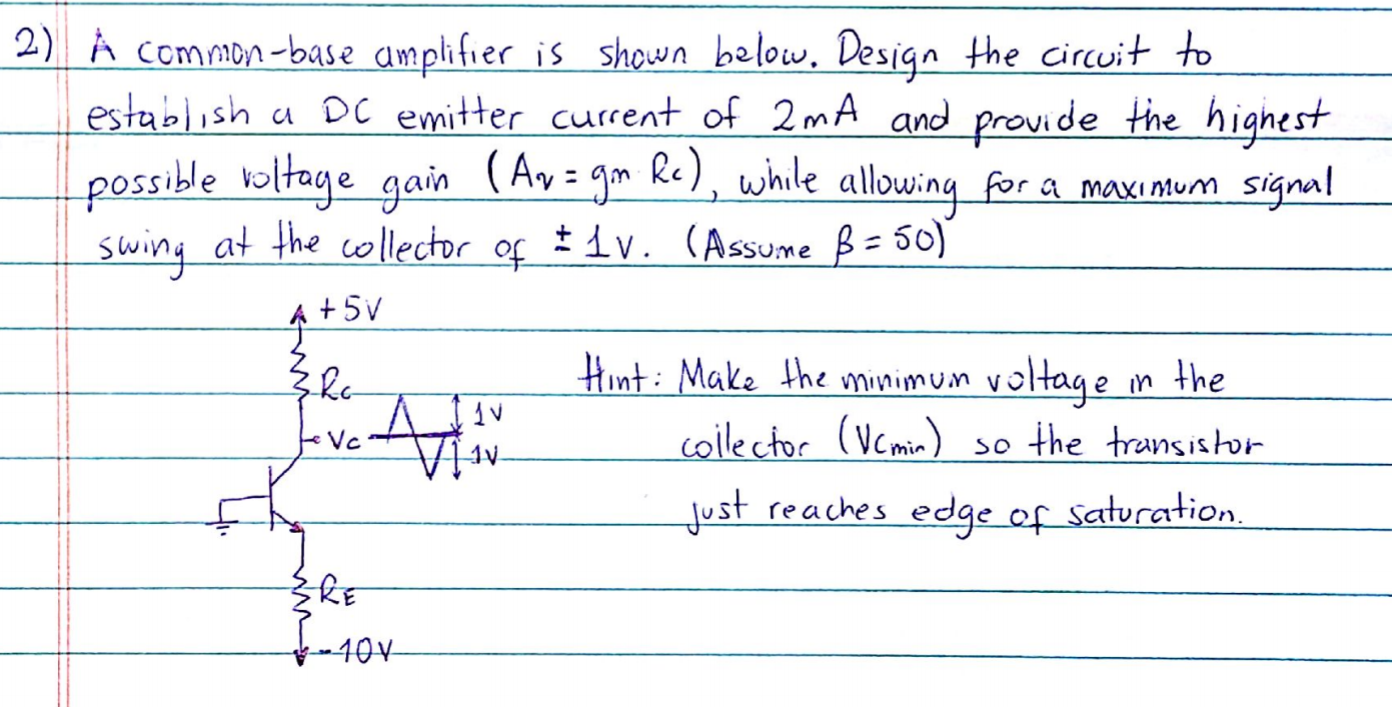 2) A common-base amplifier is shown below. Design the circuit to
establish a DC emitter current of 2mA and provide the highest
possible voltage gain (Av = gm Rc), while allowing for a maximum signal
swing at the collector of ± 1v. (Assume β = 50)
+5V
Rc
Vc
1V
1V
Hint: Make the minimum voltage in the
collector (Vcmin) so the transistor
just reaches edge of saturation.
RE
-10V